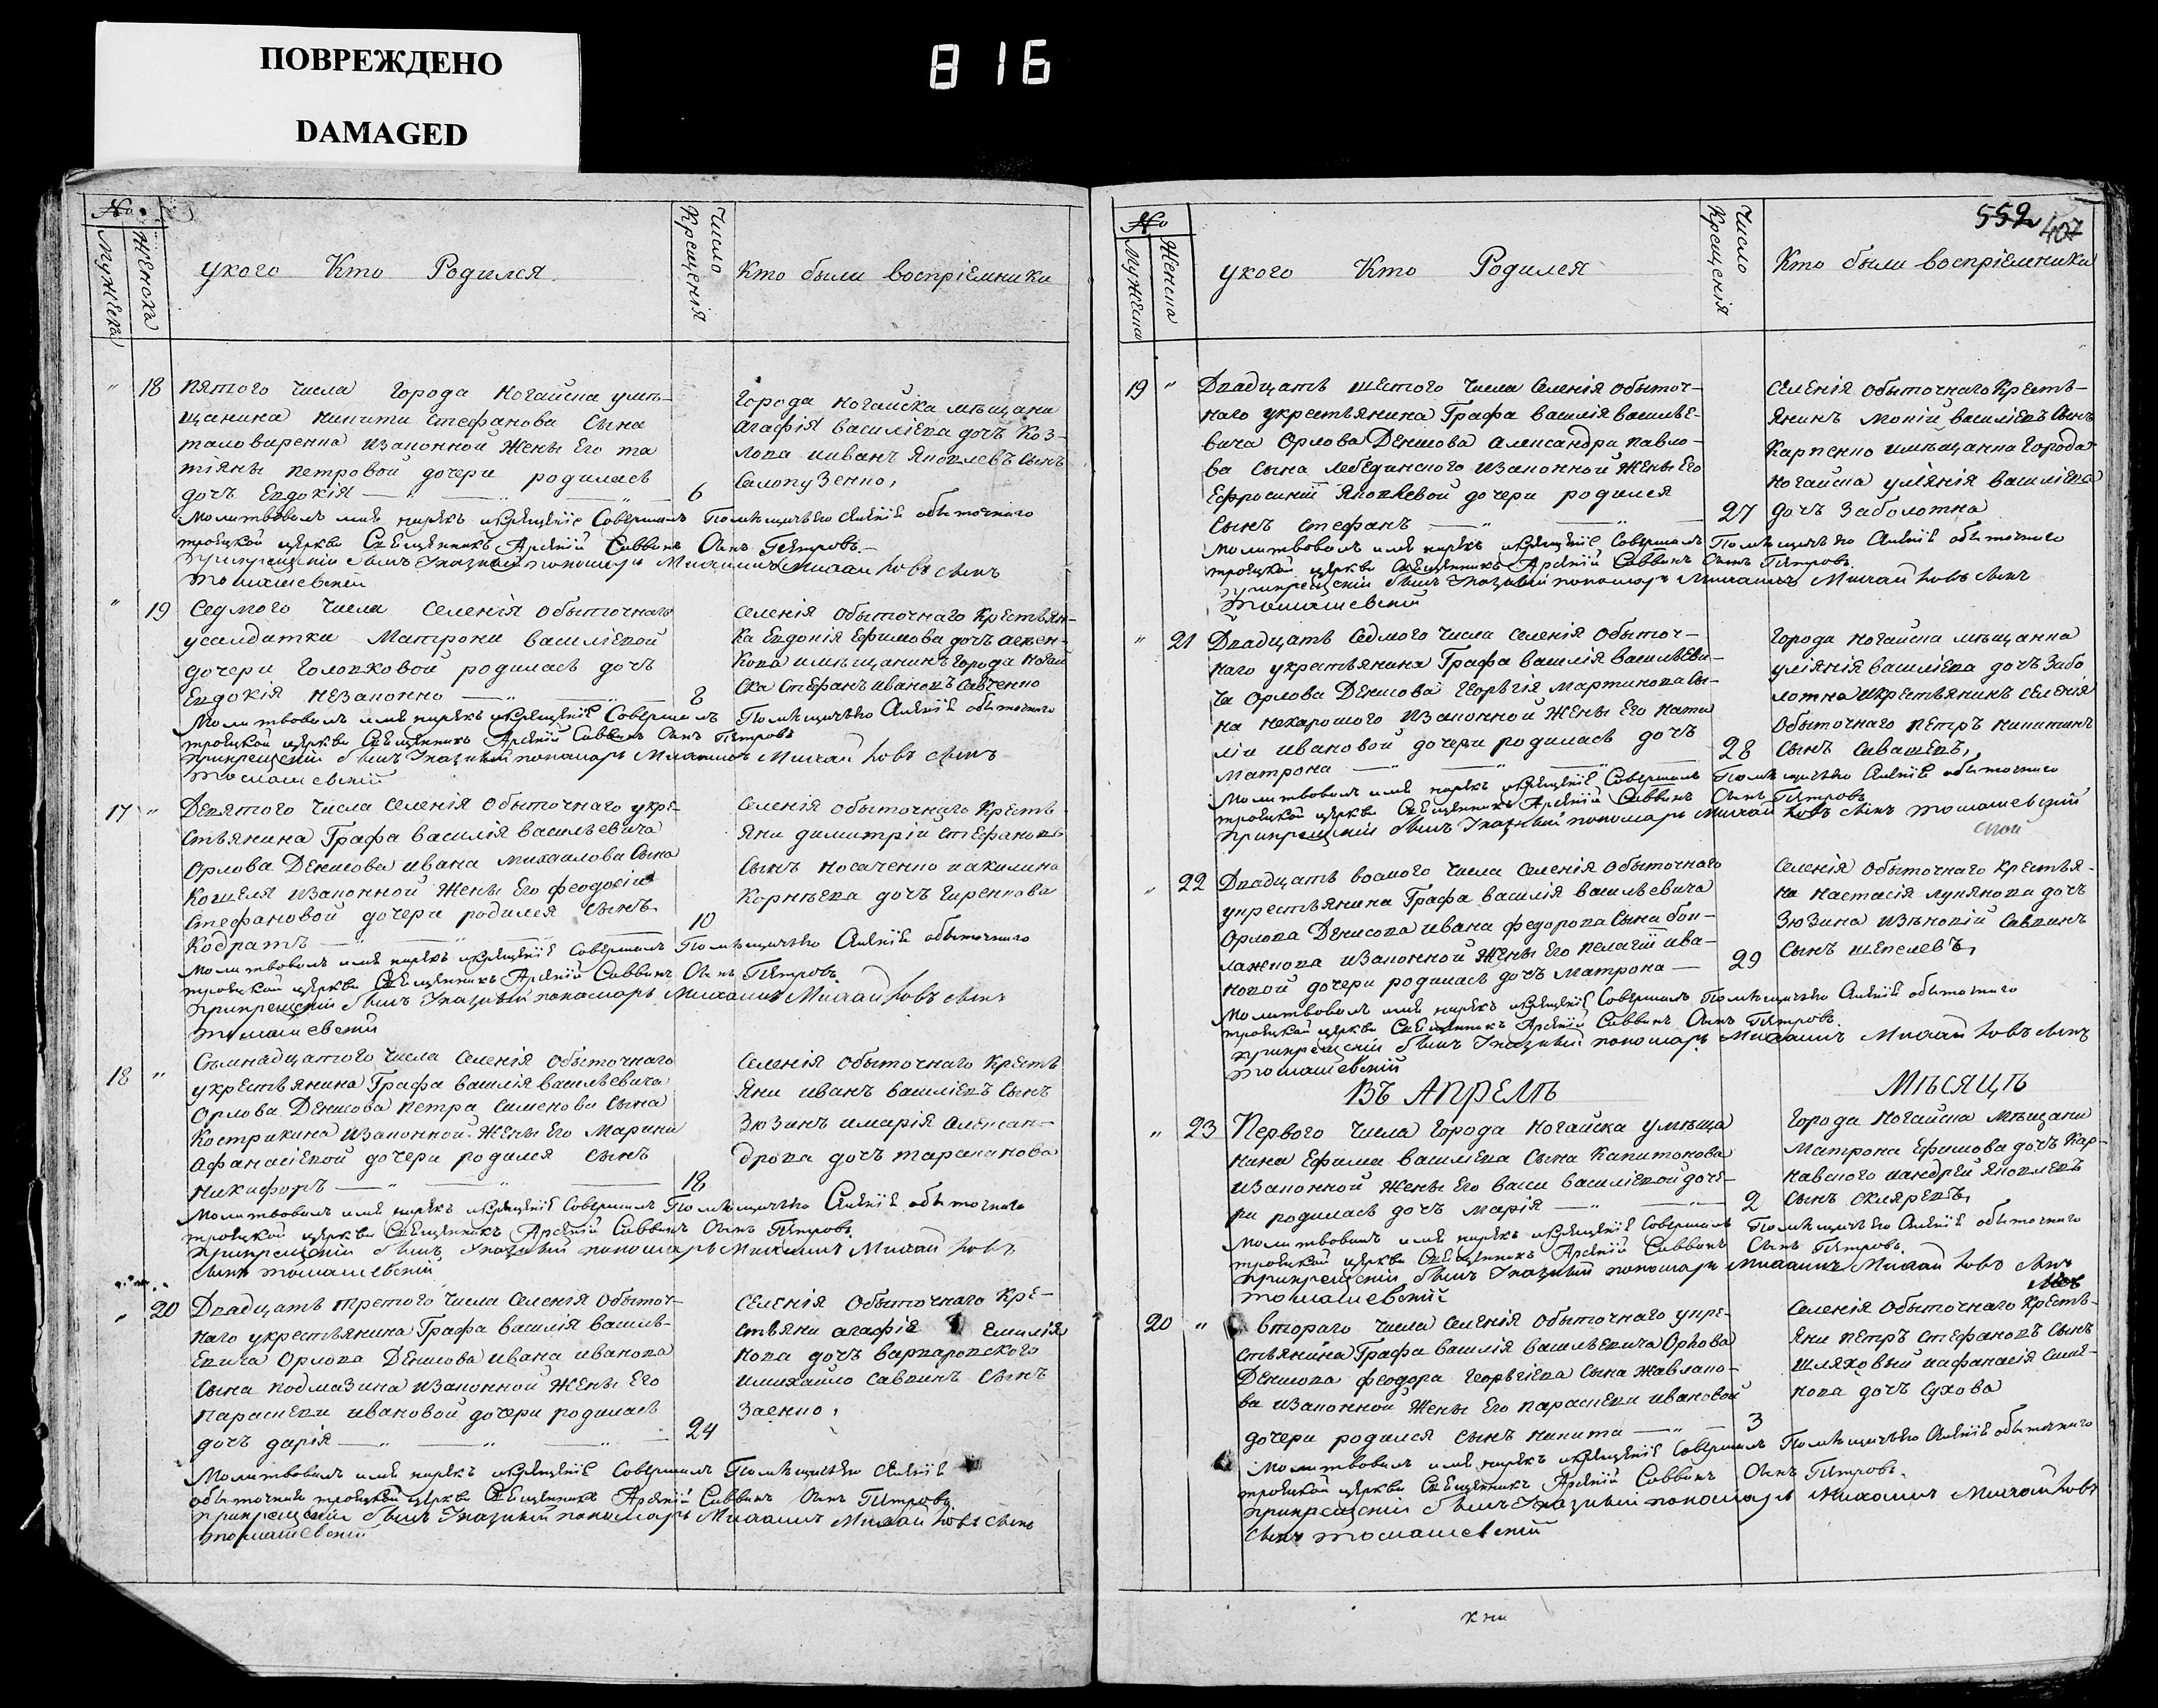 ПОВРЕЖДЕНО
DAMAGED
816
№
Мужеска
Женска
укого Кто Родился
Число Крещенія
Кто были воспріемники
" 18 пятого числа города Ногайска умѣ-
щанина никити стефанова сына
таловирenна изаконной жены его та
тіяны петровой дочери родилась
дочь Евдокія — " — " — 6
города Ногайска мѣщана
агафія василіева дочь Коз-
лова ииванъ яковлевъ сынъ
Молитвовалъ имя нарекъ икрещеніе Совершалъ Помѣщичьяго селенія обыточнаго
троицкой церкви Священникъ Арсеній Саввинъ Сынъ Петровъ
прикрещеніи былъ Указный пономарь Михаилъ Михайловъ сынъ
томашевскій
" 19 Седмого числа селенія обыточнаго
усалдатки Матрони василіевой
дочери голопковой родилась дочь
Евдокія незаконно — " — 8
селенія обыточнаго крестьян-
ка Евдокія Ефимова дочь
кова имѣщанинъ города Ногай
ска стефанъ ивановъ савченко
Молитвовалъ имя нарекъ икрещеніе Совершалъ Помѣщичьяго селенія обыточнаго
троицкой церкви Священникъ Арсеній Саввинъ Сынъ Петровъ
прикрещеніи былъ Указный пономарь Михаилъ Михайловъ сынъ
томашевскій
17 " Девятого числа селенія обыточнаго укре-
стьянина Графа василія васильевича
Орлова Денисова ивана михаилова сына
Кошеля изаконной жены его феодосіи
стефановой дочери родился сынъ
Кодратъ — " — " — 10
селенія обыточнаго кресть
яни димитрій стефановъ
сынъ носаченко иакилина
Корнѣева дочь гиренкова
Молитвовалъ имя нарекъ икрещеніе Совершалъ Помѣщичьяго селенія обыточнаго
троицкой церкви Священникъ Арсеній Саввинъ Сынъ Петровъ
прикрещеніи былъ Указный пономарь Михаилъ Михайловъ сынъ
томашевскій
18 " Семнадцатого числа селенія обыточнаго
укрестьянина Графа василія васильевича
Орлова Денисова петра симеонова сына
Кострикина изаконной жены его Марини
афанасіевой дочери родился сынъ
никифоръ — " — " — 18
селенія обыточнаго кресть
яни иванъ василіевъ сынъ
Зюзинъ имарія алексан-
дрова дочь тараканова
Молитвовалъ имя нарекъ икрещеніе Совершалъ Помѣщичьяго Селенія обыточнаго
троицкой церкви Священникъ Арсеній Саввинъ Сынъ Петровъ
прикрещеніи былъ Указный пономарь Михаилъ Михайловъ
сынъ томашевскій
" 20 Двадцать третого числа селенія обыточ-
наго укрестьянина Графа василія василь-
евича Орлова Денисова ивана иванова
сына подмазина изаконной жены его
параскеви ивановой дочери родилась
дочь дарія — " — " — " — 24
селенія обыточнаго кре-
стьяни агафія емилія
нова дочь варваровского
имихайло саввинъ сынъ
Заенко
Молитвовалъ имя нарекъ икрещеніе Совершалъ Помѣщичьяго селенія
обыточнаго троицкой церкви Священникъ Арсеній Саввинъ Сынъ Петровъ
прикрещеніи былъ Указный пономарь Михаилъ Михайловъ сынъ
томашевскій
559
407
№
Мужеска
Женска
укого Кто Родился
Число Крещенія
Кто были воспріемники
19 " Двадцать шестого числа селенія обыточ-
наго укрестьянина Графа василія василье-
вича Орлова Денисова александра павло-
ва сына лебединского изаконной жены его
Ефросиніи яковлевой дочери родился
сынъ стефанъ — " — " — 27
селенія обыточнаго кресть-
янинъ мокій василіевъ сынъ
Карпенко имѣщанка города
ногайска уліянія василіева
дочь Заболотна
Молитвовалъ имя нарекъ икрещеніе Совершалъ Помѣщичьяго селенія обыточнаго
троицкой церкви Священникъ Арсеній Саввинъ Сынъ Петровъ
прикрещеніи былъ Указный пономарь Михаилъ Михайловъ сынъ
томашевскій
" 21 Двадцать седмого числа селенія обыточ-
наго укрестьянина Графа василія васильеви-
ча Орлова Денисова георгія мартинова сы-
на нехарошого изаконной жены его ната
ліи ивановой дочери родилась дочь
матрона — " — " — 28
города ногайска мѣщанка
уліянія василіева дочь забо
лотна икрестьянинъ селенія
обыточнаго петръ никитинъ
сынъ сивашевъ
Молитвовалъ имя нарекъ икрещеніе Совершалъ Помѣщичьяго селенія обыточнаго
троицкой церкви Священникъ Арсеній Саввинъ Сынъ Петровъ
прикрещеніи былъ Указный пономарь Михайловъ сынъ томашевский
скій
" 22 Двадцать восмого числа селенія обыточнаго
укрестьянина Графа василія васильевича
Орлова Денисова ивана федорова сына бак-
лажкова изаконной жены его пелагіи ива-
новой дочери родилась дочь матрона — 29
селенія обыточнаго крестья-
на настасія лукянова дочь
Зюзина изѣновій саввинъ
сынъ шепелевъ
Молитвовалъ имя нарекъ икрещеніе Совершалъ Помѣщичьяго селенія обыточнаго
троицкой церкви Священникъ Арсеній Саввинъ Сынъ Петровъ
прикрещеніи былъ Указный пономарь Михаилъ Михайловъ сынъ
томашевскій
ВЪ АПРЕЛѢ МѢСЯЦѢ
" 23 Первого числа города ногайска умѣща
нина Ефима василіева сына капитонова
изаконной жены его васи василіевой доче-
ри родилась дочь марія — " — " — 2
города ногайска мѣщани
матрона Ефимова дочь кар-
навского иандрей яковлевъ
сынъ скляревъ
Молитвовалъ имя нарекъ икрещеніе Совершалъ Помѣщичьяго селенія обыточнаго
троицкой церкви Священникъ Арсеній Саввинъ Сынъ Петровъ
прикрещеніи былъ Указный пономарь Михаилъ Михайловъ сынъ
томашевскій
20 " втораго числа селенія обыточнаго укре-
стьянина Графа василія васильевича Орлова
Денисова феодора георгіева сына жавлано-
ва изаконной жены его параскеви ивановой
дочери родился сынъ никита — " — 3
селенія обыточнаго кресть-
яни петръ стефановъ сынъ
шляховый иафанасія симе-
нова дочь сухова
Молитвовалъ имя нарекъ икрещеніе Совершалъ Помѣщичьяго селенія обыточнаго
троицкой церкви Священникъ Арсеній Саввинъ Сынъ Петровъ
прикрещеніи былъ Указный пономарь Михаилъ Михайловъ
сынъ томашевскій